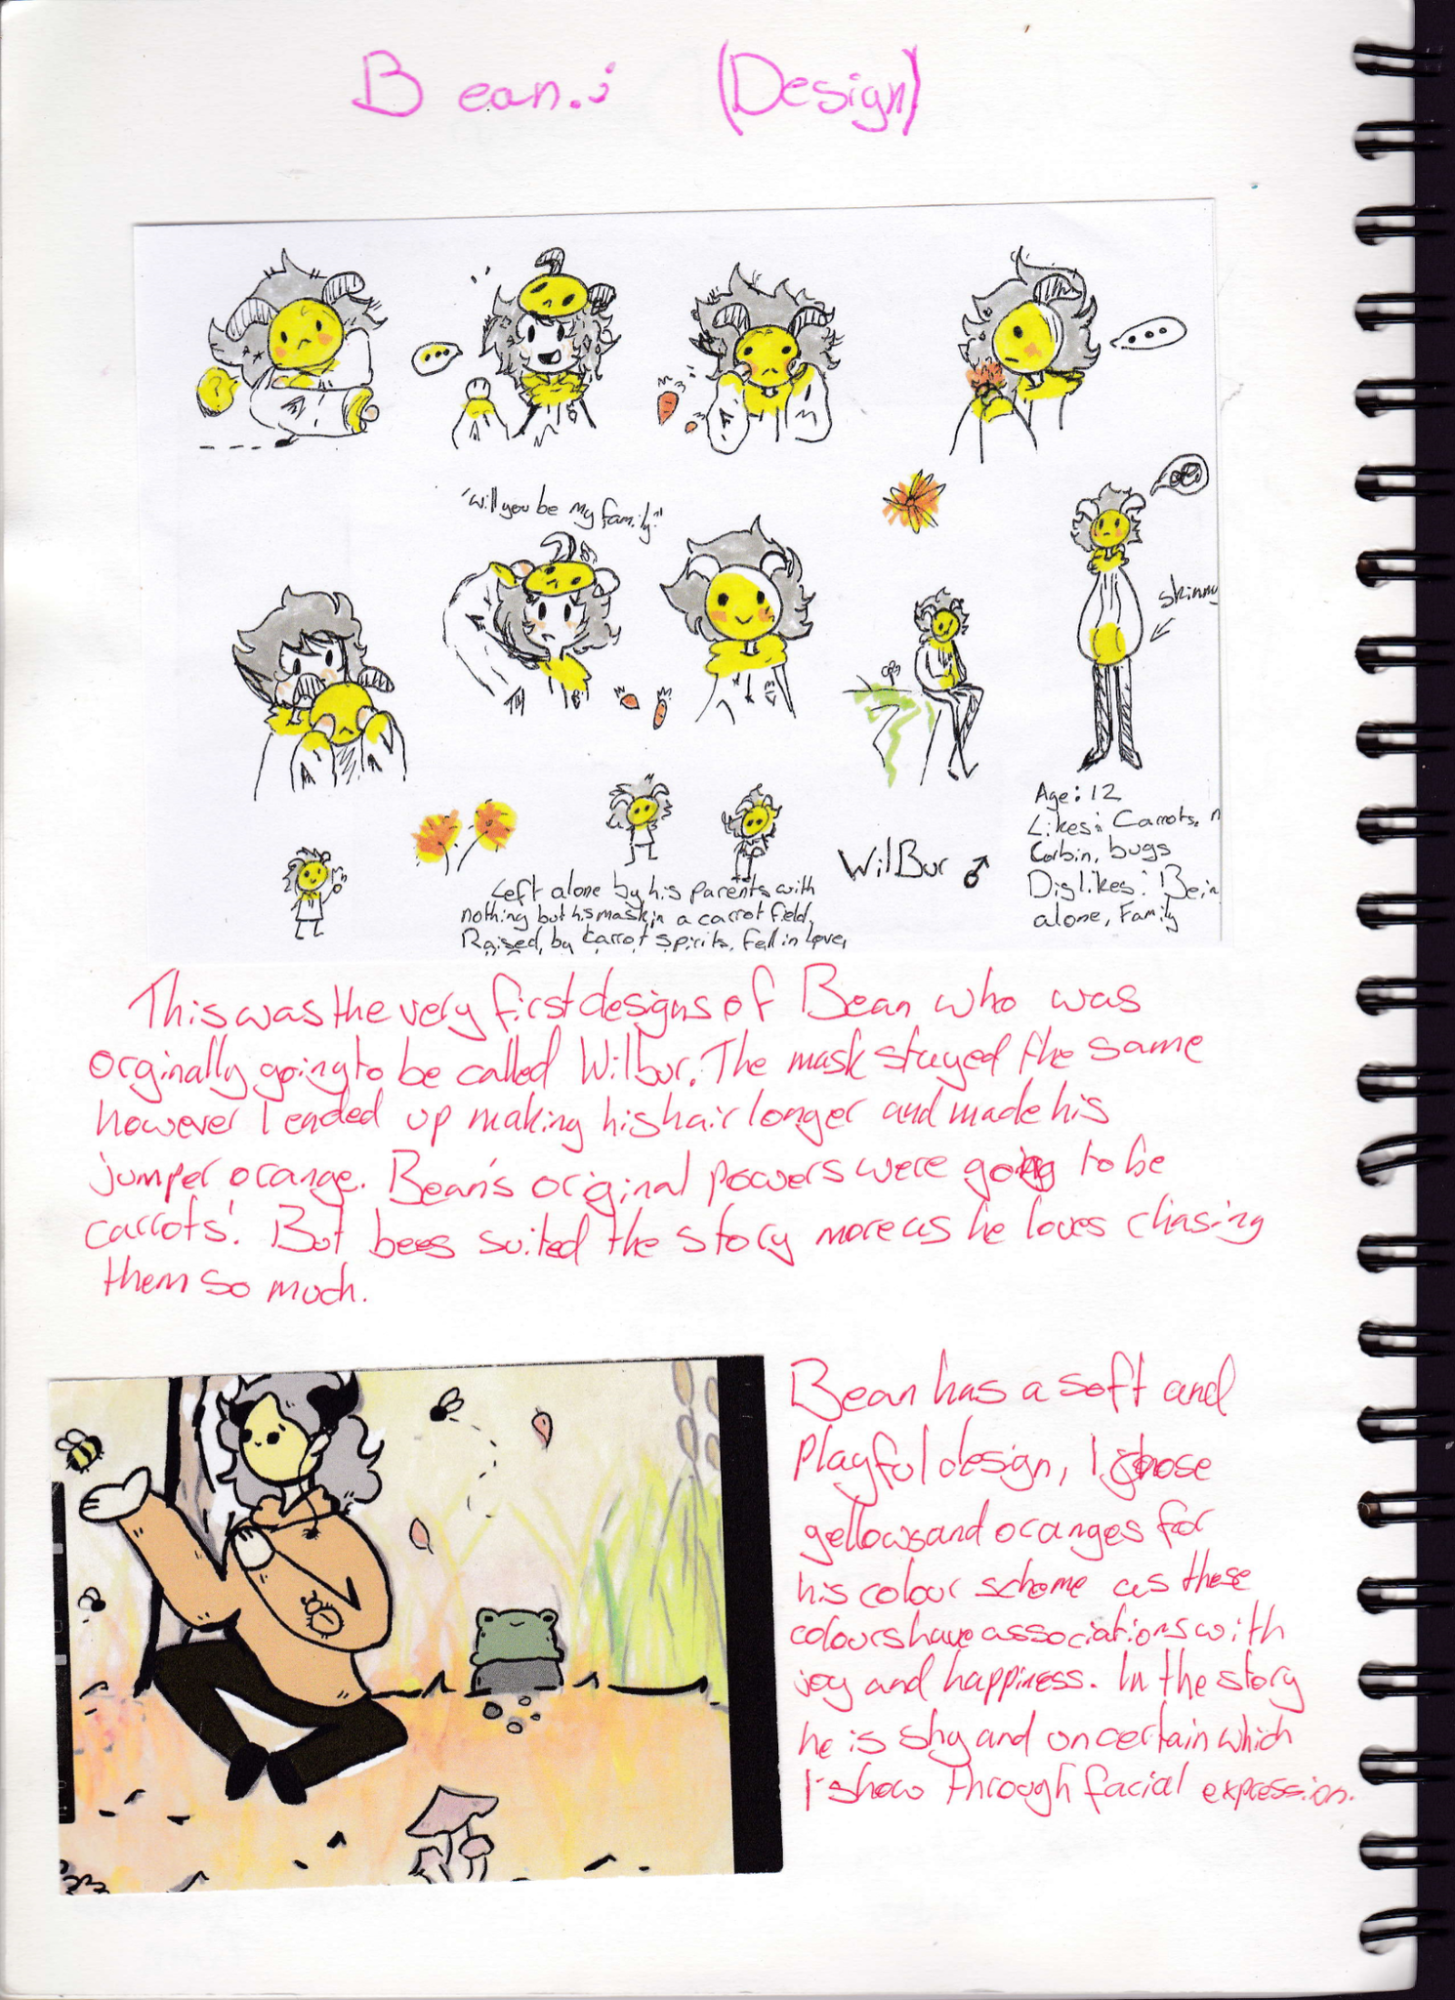 Bean.; (Design)
"Will you be my family"
skinny
Age: 12
Likes: Carrots,
Corbin, bugs
Dislikes: Bein
alone, Family
WilBur ♂
Left alone by his parents with
nothing but his mask in a carrot field,
Raised by carrot spirits, fell in love,
This was the very first designs of Bean who was
orginally going to be called Wilbur. The mask stayed the same
however I ended up making his hair longer and made his
jumper orange. Bean's original powers were going to be
carrots! But bees suited the story more as he loves chasing
them so much.
Bean has a soft and
playful design, I chose
yellows and oranges for
his colour scheme as these
colours have associations with
joy and happiness. In the story
he is shy and uncertain which
I show through facial expression.